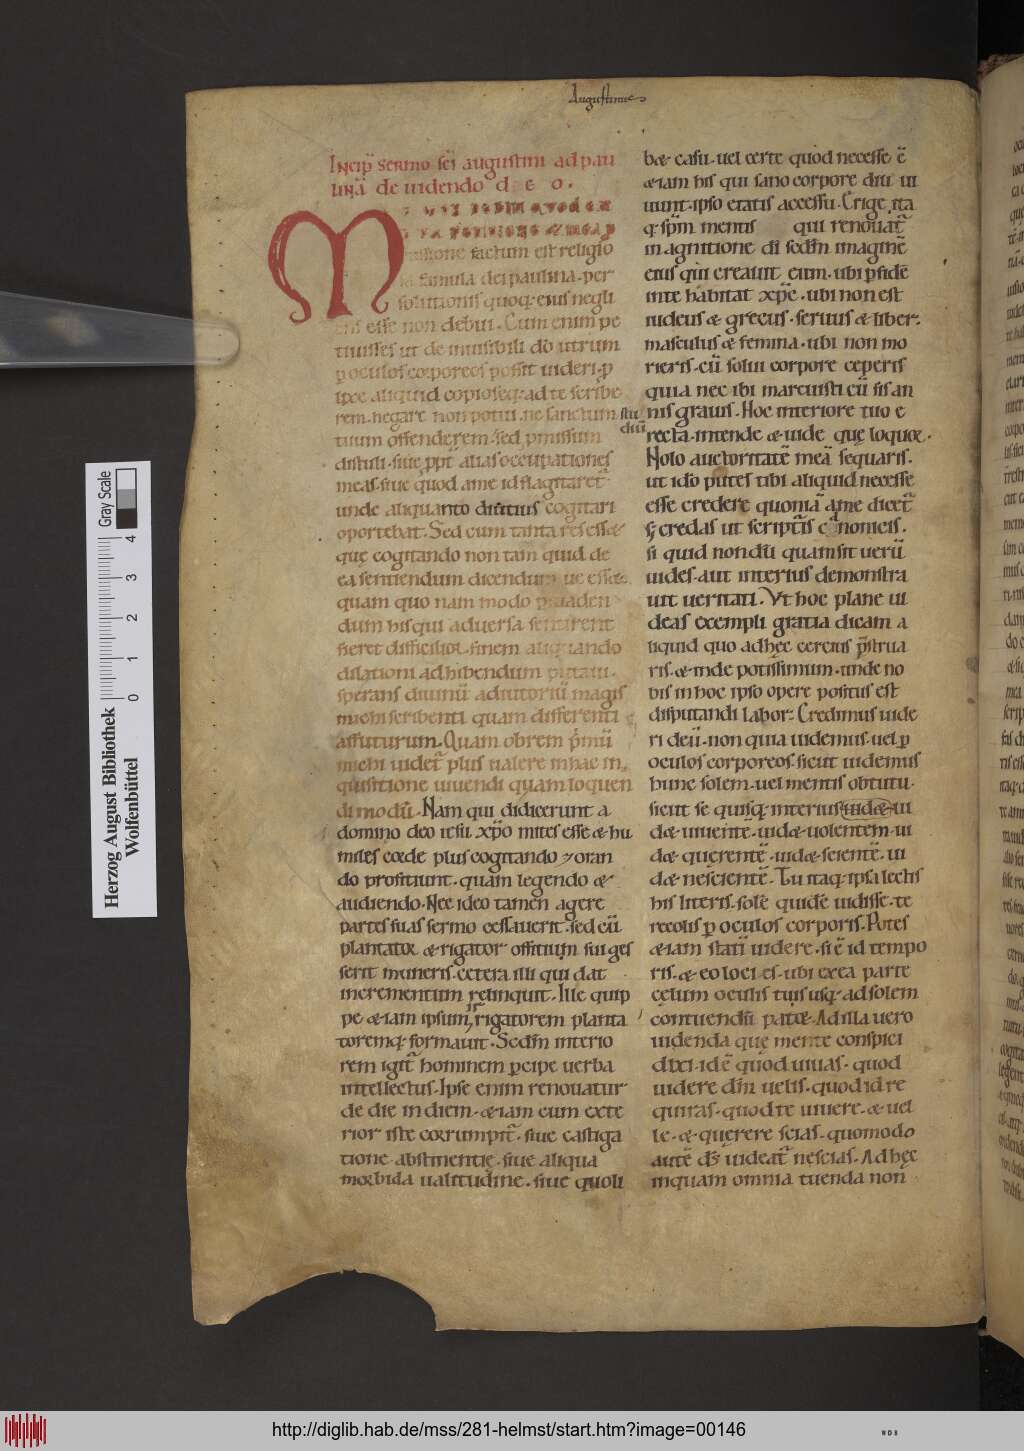 Augustinus
Incip̄ sermo sc̄i augustini ad pau
linā de uidendo d e o.
factum est religio
famula dei paulina. per
solutionis quoq; eius negli
ens esse non debui. Cum enim pe
tiuisses ut de inuisibili dō utrum
p oculos corporeos possit uideri. p
lixe aliquid copioseq; ad te scribe
rem. negare non potui. ne sanctum stu
diū
tuum offenderem. sed pmissum
distuli. siue ppt̄ alias occupationes
meas. siue quod a me id flagitaret̄
unde aliquanto diutius cogitari
oportebat. Sed cum tanta res esset
quę cogitando non tam quid de
ea sentiendum dicendum ue esset.
quam quo nam modo p suaden
dum his qui aduersa sentirent
fieret difficilior. finem aliquando
dilationi adhibendum putaui.
sperans diuinū adiutoriū magis
michi scribenti quam differenti
affuturum. Quam obrem p̄mū
michi uidet̄ plus ualere in hac in
quisitione uiuendi quam loquen
di modū. Nam qui didicerunt a
domino deo iesu xp̄o mites esse & hu
miles corde plus cogitando 7 oran
do proficiunt. quam legendo &
audiendo. Nec ideo tamen agere
partes suas sermo cessauerit. sed cū
plantator & rigator offitium sui ges
serit muneris. cetera illi qui dat
incrementum relinquit. Ille quip
pe & iam ipsum rigatorem planta
toremq; formauit. Sedm̄ interio
rem igit̄ hominem pcipe uerba
intellectus. Ipse enim renouatur
de die in diem. & iam cum exte
rior iste corrumpit̄. siue castiga
tione abstinentię. siue aliqua
morbida ualitudine. siue quoli
b& casu. uel certe quod necesse ē
& iam his qui sano corpore diu ui
uunt. ipso etatis accessu. Erige ita
q; sp̄m mentis qui renouat̄
in agnitione di sedm̄ imaginē
eius qui creauit eum. ubi p fidē
in te habitat xp̄c. ubi non est
iudeus & grecus. seruus & liber.
masculus & femina. ubi non mo
rieris. cū solui corpore ceperis
quia nec ibi marcuisti cū sis an
nis grauis. Hoc interiore tuo e
recta. intende & uide quę loquor.
Nolo auctoritatē meā sequaris.
ut ido putes tibi aliquid necesse
esse credere quoniā a me dicet̄
s; credas ut scriptis canonicis.
si quid nondū quam sit uerū
uides. aut interius demonstra
uit ueritati. Vt hoc plane ui
deas exempli gratia dicam a
liquid quo adhęc certius p̄strua
ris. & inde potissimum. unde no
bis in hoc ipso opere positus est
disputandi labor: Credimus uide
ri deū. non quia uidemus. uel p
oculos corporeos. sicut uidemus
hunc solem. uel mentis obtutu.
sicut se quisq; interius uid& ui
d& uiuentē. uid& uolentem. ui
d& querentē. uid& scientē. ui
d& nescientē. Tu itaq; ipsa lectis
his literis. solē quidē uidisse te
recolis p oculos corporis. Potes
& iam statī uidere. si ē id tempo
ris. & eo loci es. ubi exea parte
cęlum oculis tuis usq; ad solem
contuendū pat&. Ad illa uero
uidenda quę mente conspici
dixi. id ē quod uiuas. quod
uidere dm̄ uelis. quod id re
quiras. quod te uiuere. & uel
le. & querere scias. quomodo
autē ds̄ uideat̄ nescias. Ad hęc
inquam omnia tuenda non
Herzog August Bibliothek
Wolfenbüttel
Gray Scale
0 1 2 3 4
http://diglib.hab.de/mss/281-helmst/start.htm?image=00146